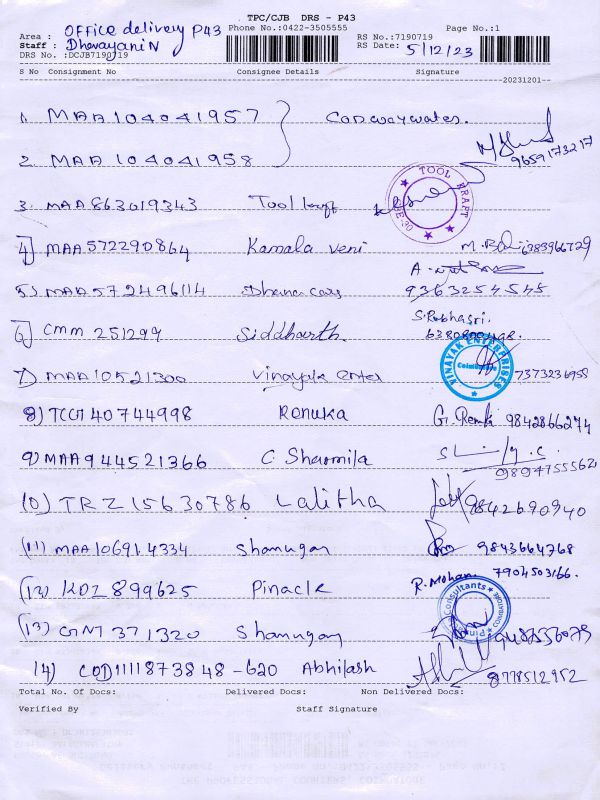 TPC/CJB DRS - P43
Area : OFFice delivery P43 Phone No.:0422-3505555 RS No.:7190719 Page No.:1
Staff : Dhevayani N RS Date: 5/12/23
DRS No. :DCJB7190719
S No Consignment No Consignee Details Signature
20231201
1. MAA104041957 Conwaywates.
2. MAA 104041958 9659173217
3. MAA 863019343 Tool kraft TOOL KRAFT
4) MAA 572290864 Kamala veni 6383966729
5) MAA 572496114 Dhanacars 9363254545
6) CMM 251299 Siddharth. S. Rabhasri.
7) MAA 10521300 Vinayak enter VINAYAK ENTERPRISES Coimbatore 7373236958
8) TCG140744998 Renuka 9842866274
9) MAA944521366 C Sharmila 9894755562
10) TRZ 15630786 Lalitha 9842690940
(11) MAA10691.4334 Shanugan 9843664768
(12) KDI 899625 Pinacle R. Mohan. 7904503166.
(13) GNT 371320 Shanugay Consultants 9487556079
14) COD1111873848 - 620 Abhilash 8778512952
Total No. Of Docs: Delivered Docs: Non Delivered Docs:
Verified By Staff Signature